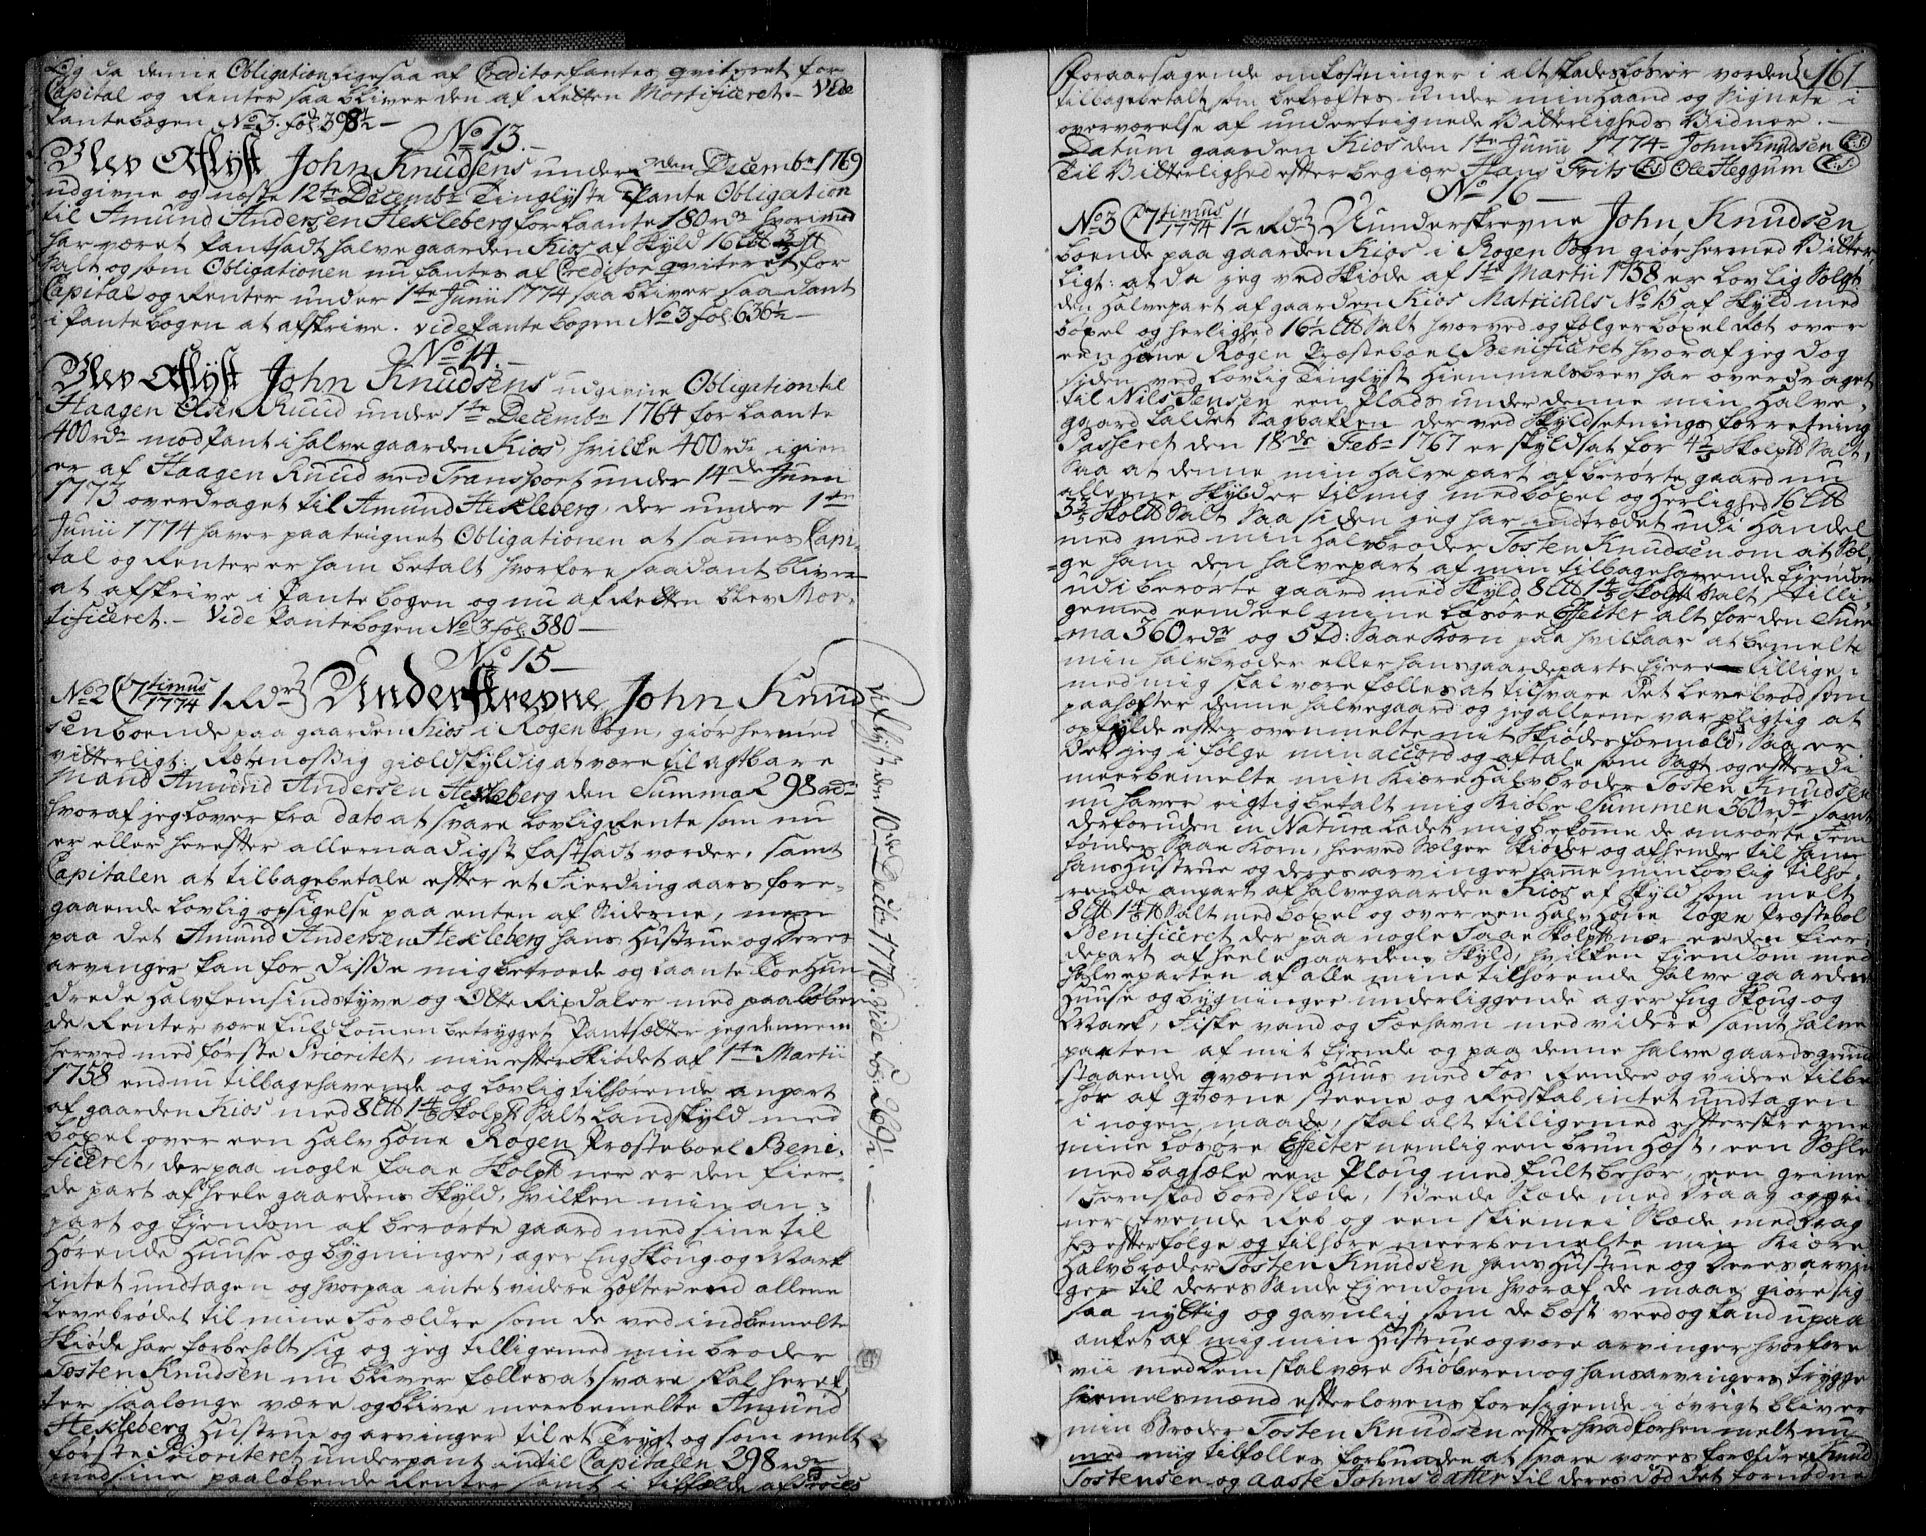 Og da denne Obligation ligesaa af Creditor fantes qviteret for
Capital og Renter saa bliver den af Retten Mortificeret. Vide
Pantebogen No 3. fol: 398½ —
No 13.
Blev Aflyst John Knudsens under Decembr 1769
udgivne og næste 12te Decembr Tinglyste Pante Obligation
til Amund Andersen Hekleberg for Laante 180 rdr hvorimod
har været Pantsadt halve gaarden Kios af Skyld 16 Ltt
Salt og som Obligationen nu fantes af Creditor qviteret for
Capital og Renter under 1te Junii 1774 saa bliver saadant
i Pantebogen at afskrive. vide Pantebogen No 3 fol: 636½ —
No 14.
Blev Aflyst John Knudsens udgivne Obligation til
Haagen Olsen Ruud under 1te Decembr 1764 for Laante
400 rdr mod Pant i halve gaarden Kios, hvilke 400 rdr igien
er af Haagen Ruud ved Transport under 14de Junii
1773 overdraget til Amund Hekleberg, der under 1te
Junii 1774 haver paateignet Obligationen at sammes Capi-
tal og Renter er ham betalt hvorfore saadant bliver
at afskrive i Pantebogen og nu af Retten blev Mor-
tificeret. — Vide Pantebogen No 3 fol: 380 —
No 15 —
No 2 C 7timus 1774 1 Rdr Underskrevne John Knud
sen boende paa gaarden Kios i Rogen Sogn, giør hermed
vitterligt: Retmæssig giældskyldig at være til agtbare
Mand Amund Andersen Hekleberg den Summa 298 rdr
hvoraf jeg lover fra dato at svare lovlig Rente som nu
er eller herefter allernaadigst fastsadt vorder, samt
Capitalen at tilbagebetale efter et Fierding aars fore-
gaaende lovlig opsigelse paa enten af Siderne, men
paa det Amund Andersen Hekleberg hans Hustrue og Deres
arvinger kan for disse mig betroede og laante Toe Hun
drede Halvfemsindstyve og Otte Rixdaler med paaløben
de Renter være fuldkommen betrygget, Pantsætter jeg dennem
herved med første Prioritet, min efter Skiødet af 1te Martii
1758 endnu tilbagehavende og lovlig tilhørende anpart
af gaarden Kios med 8 Ltt 1⅘ Skolptt Salt Landskyld med
bøxel over een Halv Hone Rogen Præsteboel Beni-
ficeret, der paa nogle faae Skolptt nær er den fier-
de part af heele gaardens Skyld, hvilken min an-
part og Eiendom af berørte gaard med sine til
Hørende Huuse og bygninger, ager Eng Skoug og Mark
intet undtagen og hvorpaa intet videre Hæfter end allene
Levebrødet til mine Forældre som de ved indbemelte
Skiøde har forbeholt sig og jeg tilligemed min broder
Tosten Knudsen nu bliver fælles at svare skal heref-
ter saalenge være og blive meerbemelte Amund
Hekleberg Hustrue og arvinger til et Trygt og som melt
første Prioriteret underpant intil Capitalen 298 rdr
med sine paaløbende Renter samt i tilfælde af Proces
Aflyst den 10de Decbr 1776 vide fol: 269½. —
161
foraarsagende omkostninger i alt skadesløs er vorden
tilbagebetalt som bekræftes under min Haand og Signete i
overværelse af undertegnede Vitterligheds Vidner.
Datum gaarden Kios den 1te Junii 1774 — John Knudsen (L:S:)
Til Vitterlighed efter begiær Hans Frits (L:S:) Ole Heggum (L:S:)
No 16 —
No 3 C 7timus 1774 1½ Rdr Underskrevne John Knudsen
boende paa gaarden Kios i Rogen Sogn giør hermed Vitter
ligt: at da jeg ved Skiøde af 1te Martii 1758 er lovlig Solgt
den Halvepart af gaarden Kios Matriculs No 15 af Skyld med
bøxel og herlighed 16½ Ltt Salt hvorved og følger bøxel Ret over
een Hone Rogen Præsteboel Benificeret hvoraf jeg dog
siden ved lovlig Tinglyst Hiemmelsbrev har overdraget
til Nils Jensen een Plads under denne min Halve
gaard kaldet Sagbakken der ved Skyldsetnings forretning
Passeret den 18de Febr 1767 er skyldsat for Skolptt Salt,
Saa at denne min Halvepart af berørte gaard nu
alleene Skylder til mig med bøxel og Herlighed 16 Ltt
3⅗ Skoltt Salt Saa siden jeg har indtrædet udi Handel
med med min Halvbroder Tosten Knudsen om at Sæl-
ge ham den halvepart af min tilbagehavende Eiendom
udi berørte gaard med Skyld 8 Ltt 1⅘ Skoltt Salt tilli-
gemed eendeel mine Løsøre Effecter alt for den Sum
ma 360 rdr og 5 Td: Saae Korn paa hvilkaar at bemelte
min halvbroder eller hans gaardeparts Eiere tillige
med mig skal være fælles at tilsvare det Levebrød som
paahæfter denne halvegaard og jeg alleene var pligtig at
opfylde efter ovenmelte mit Skiødes formæld; Saa er
det jeg i følge min accord og aftale som Sagt og efterdi
meerbemelte min kiære Halvbroder Tosten Knudsen
nu haver rigtig betalt mig Kiøbe Summen 360 rdr samt
derforuden in Natura ladet mig bekomme de anrørte Fem
Tønder Saae Korn, herved Sælger Skiøder og afhender til ham
hans Hustrue og deres arvinger samme min lovlig tilhø-
rende anpart af halvegaarden Kios af Skyld som melt
8 Ltt 1⅘ tt Salt med bøxel og over een Halv Hone Rogen Præstebol
Benificeret der paa nogle Faae Skolptt nær er den fier-
depart af heele gaardens Skyld, hvilken Eiendom med
halveparten af alle mine tilhørende halve gaardens
Huuse og bygninger underliggende ager Eng Skoug og
Mark, Fiske vand og Fæehavn med videre samt halve
parten af mit Eiende og paa denne halve gaards grund
staaende qværne Huus med Fos Render og videre tilbe
hør af qværne steene og Redskab intet undtagen
i nogen maade, skal alt tilligemed efterskrevne
mine Løsøre Effecter nemlig een brun Hæst, een Sæhle
med bagsæle een Ploug med fult behør, een grime
1 Jernskod bordslæde, 1 Veede Slæde med Draag og gri-
ner, tvende Reb og een skiemei Slæde med Drag
her efterfølge og tilhøre meerbemelte min kiære
Halvbroder Tosten Knudsen hans Hustrue og Deres arvin
ger til deres Sande Eiendom hvoraf de maae giøre sig
saa nyttig og gavnlig som de best veed og kand upaa
anket af mig min Hustrue og vore arvinger hvorfore
vii med dem skal være Kiøberen og hans arvingers trygge
Hiemelsmænd efter Lovens foresigende i øvrigt bliver
min Broder Tosten Knudsen efter hvad forhen melt nu
med mig tilfælles forbunden at svare vores forældre Knud
Tostensen og Aaste Johns datter til deres død det fornødne